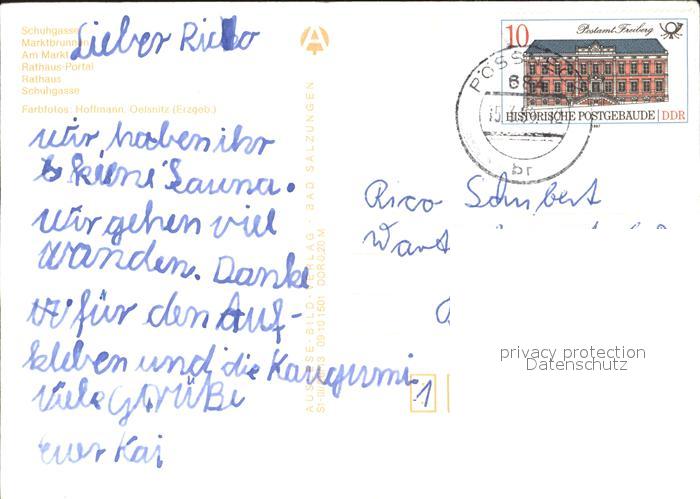 Schuhgasse
Marktbrunnen
Am Markt
Rathaus-Portal
Rathaus
Schuhgasse
Farbfotos: Hoffmann, Oelsnitz (Erzgeb.)
Lieber Rico
wir haben ihr
keine Sauna.
Wir gehen viel
wanden. Danke
für den Auf-
kleben und die Kaugumi.
Viele Grüße
euer Kai
AUSLESE-BILD-VERLAG · BAD SALZUNGEN
09 10 1501 DDR 0,20 M
10
Postamt Freiberg
HISTORISCHE POSTGEBÄUDE DDR
PÖSSNECK
br
Rico Schubert
1
privacy protection
Datenschutz